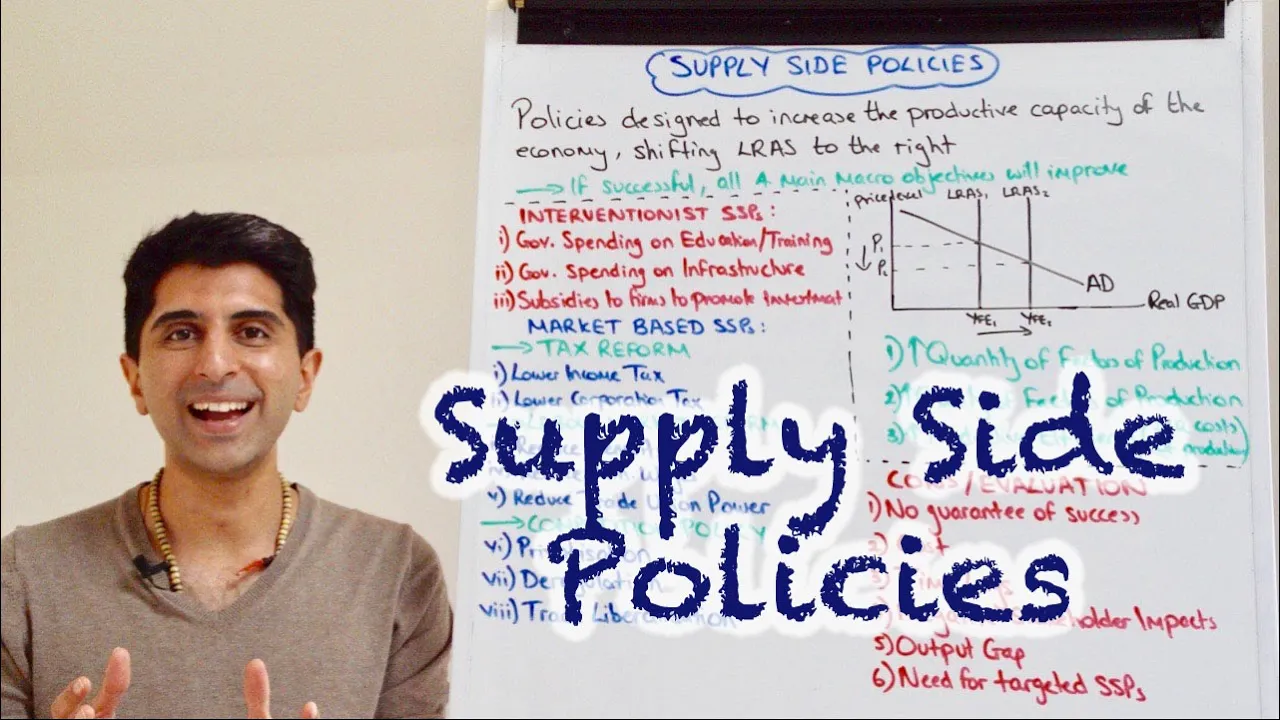 SUPPLY SIDE POLICIES
Policies designed to increase the productive capacity of the
economy, shifting LRAS to the right
→ If successful, all 4 Main Macro objectives will improve
INTERVENTIONIST SSPs:
i) Gov. Spending on Education/Training
ii) Gov. Spending on Infrastructure
iii) Subsidies to firms to promote investment
MARKET BASED SSPs:
→ TAX REFORM
i) Lower Income Tax
ii) Lower Corporation Tax
v) Reduce Trade Union Power
→ COMPETITION POLICY
vi) Privatisation
vii) Deregulation
viii) Trade Liberalisation
Price level LRAS₁ LRAS₂
P₁
P₂
AD
Real GDP
YFE₁ YFE₂
1) ↑ Quantity of Factors of Production
2) of Factors of Production
3) costs)
production)
CONS/EVALUATION
1) No guarantee of success
2) Cost
3)
Stakeholder Impacts
5) Output Gap
6) Need for targeted SSPs
Supply Side
Policies